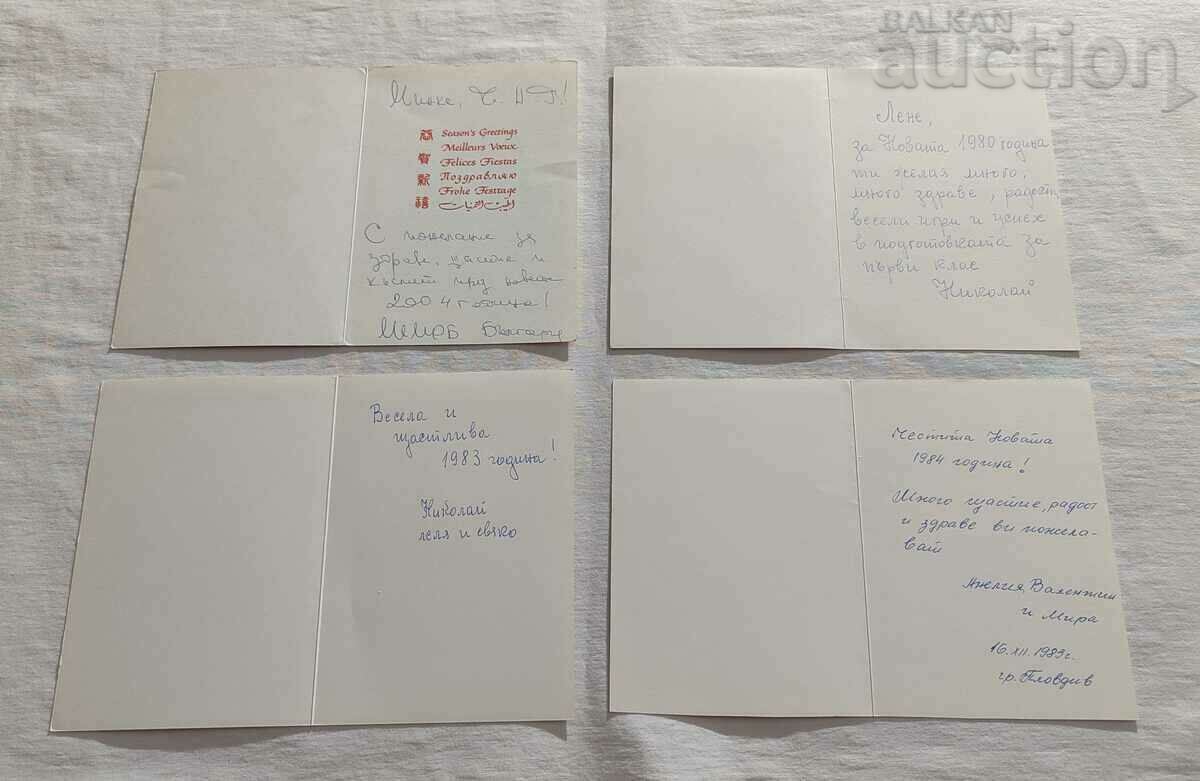 BALKAN
auction
Ч. Н Г!
Season's Greetings
Meilleurs Vœux
Felices Fiestas
Поздравляю
Frohe Festtage
恭
賀
新
禧
С пожелание за
здраве, щастие и
късмет през
2004 година!
Лене,
за Новата 1980 година
ти желая много,
много здраве, радости
весели игри и успех
в подготовката за
първи клас
Николай
Весела и
щастлива
1983 година!
Николай
леля и свяко
Честита Новата
1984 година!
Много щастие, радост
и здраве ви пожела-
ват
Анелия, Валентин
и Мира
16.XII.1983г.
гр. Пловдив